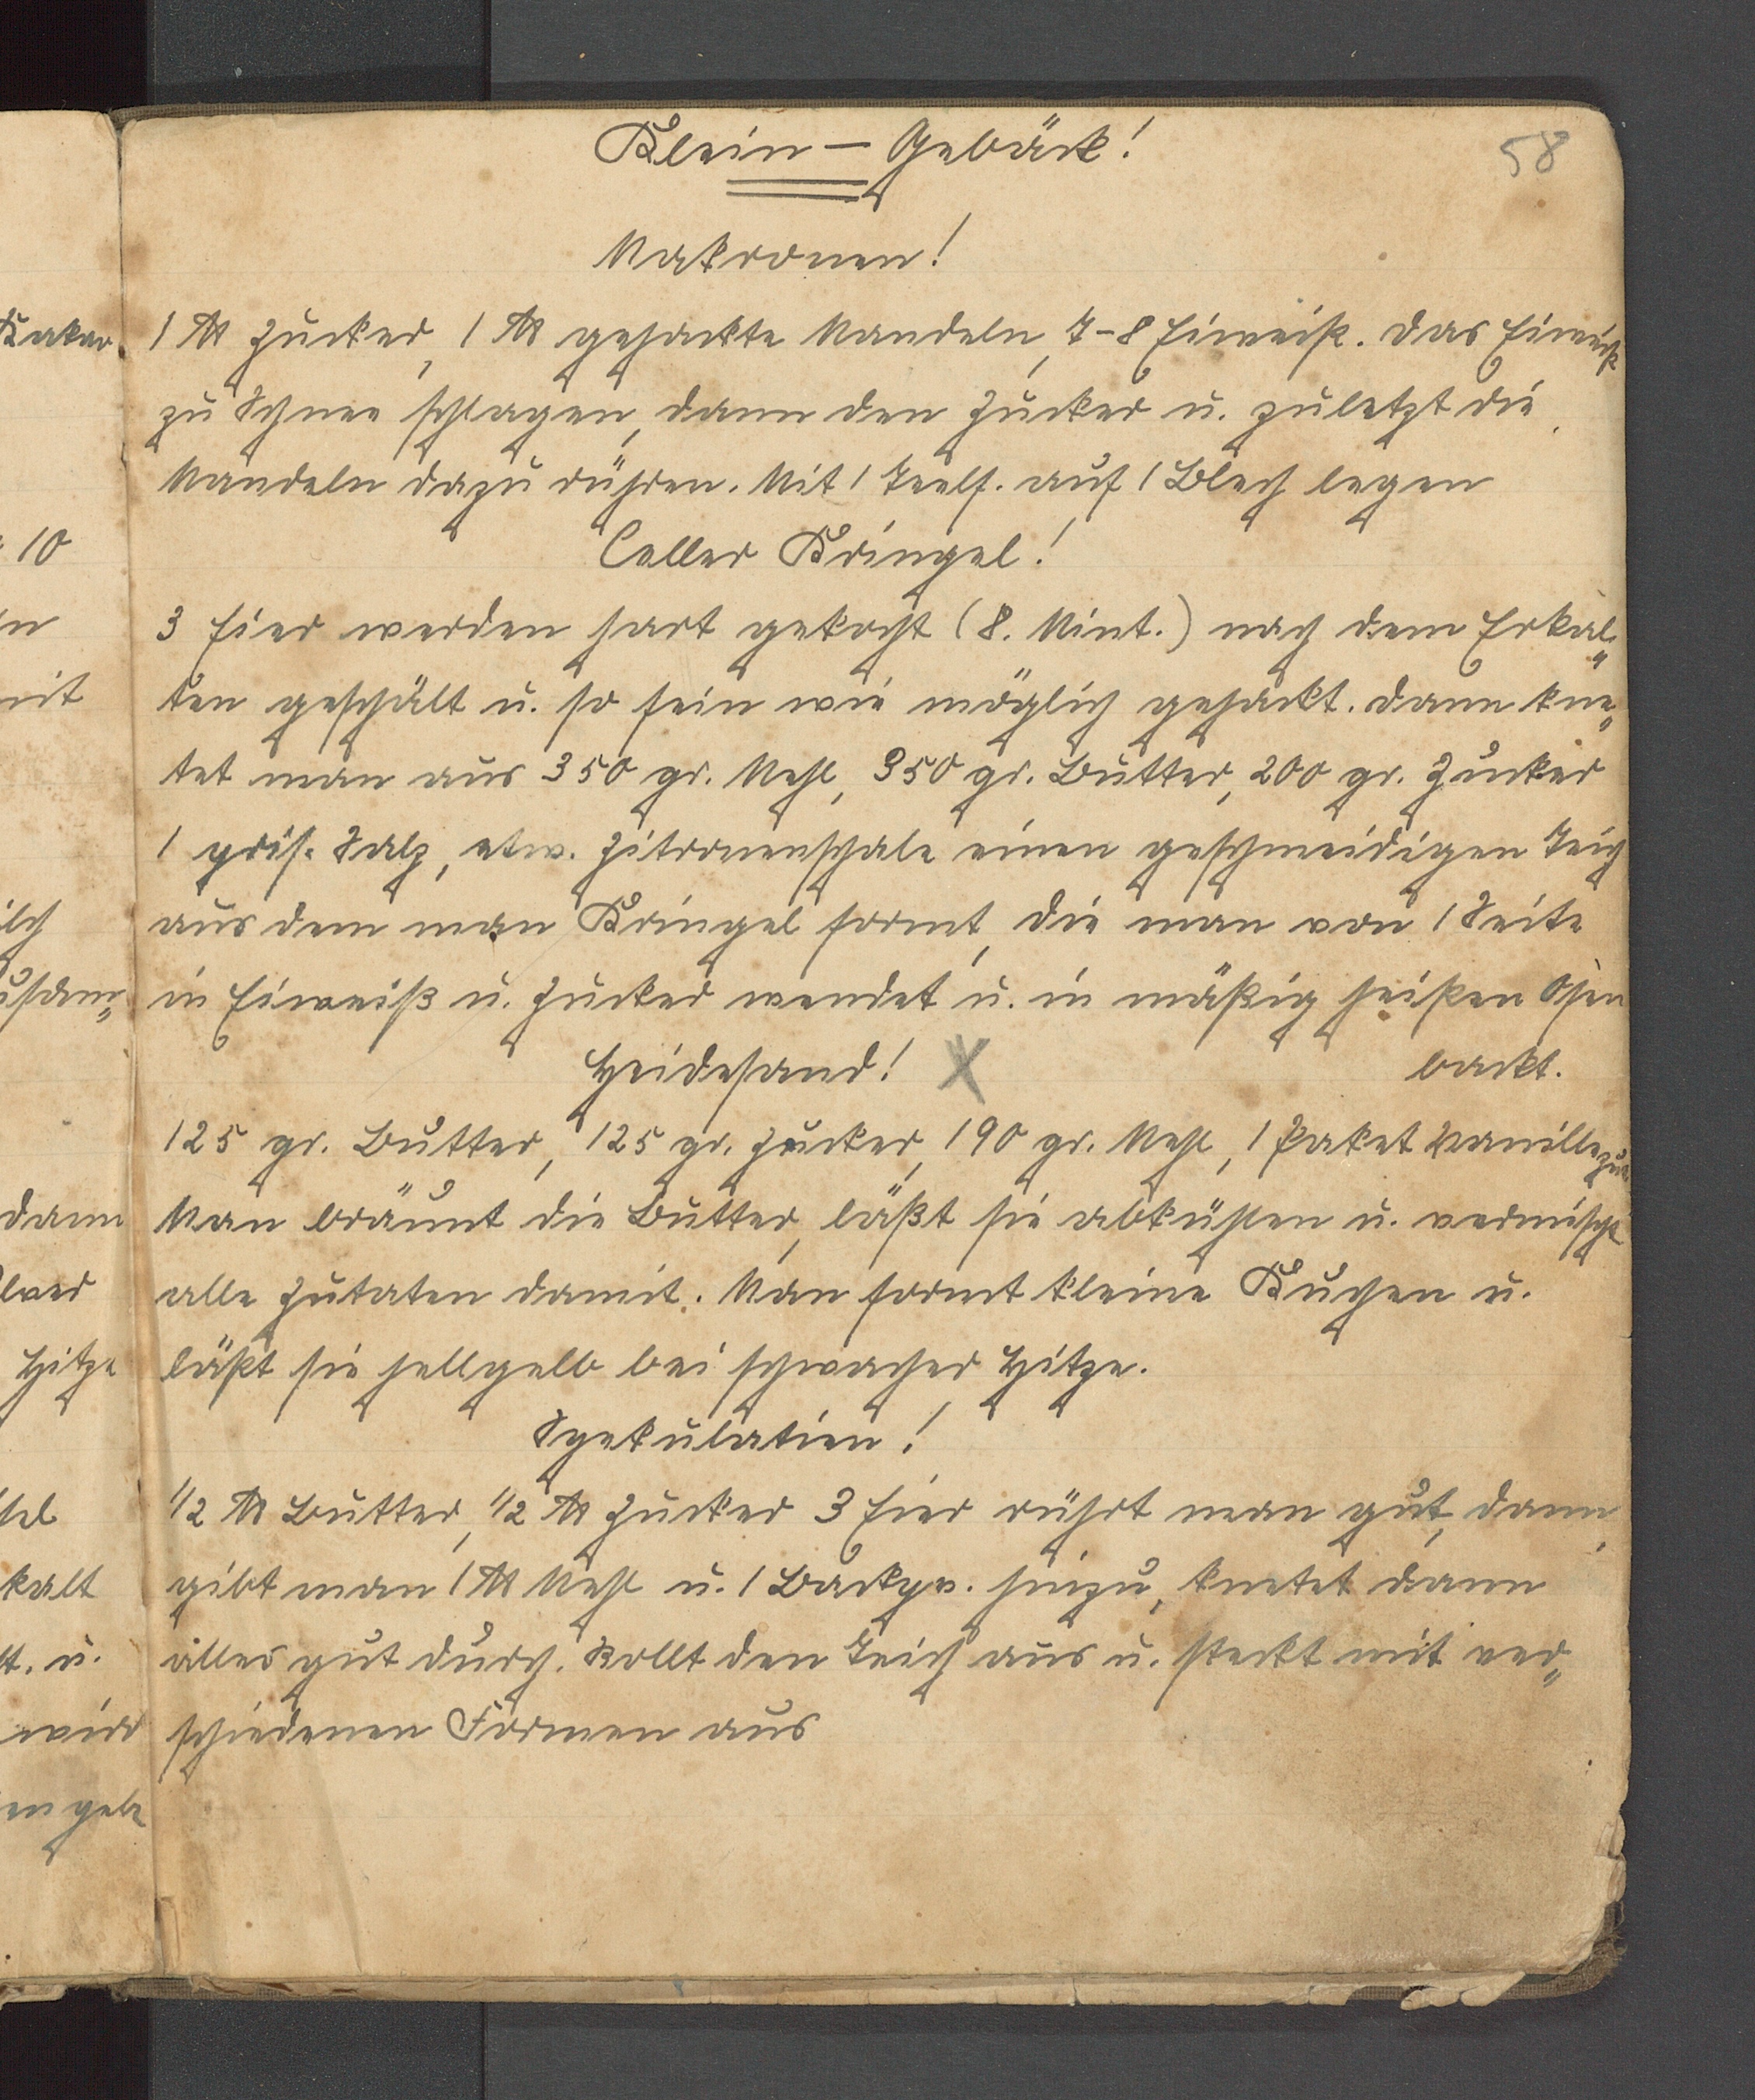 Klein - Gebäck!
58
Makronen!
1 ℔ Zucker, 1 ℔ gehackte Mandeln, 7-8 Eiweiß. Das Eiweiß
zu Schnee schlagen, dann den Zucker u. zuletzt die
Mandeln dazu rühren. Mit 1 Teelf. auf 1 Blech legen
Celler Kringel!
3 Eier werden hart gekocht (8. Mint.) nach dem Erkal„
ten geschält u. so fein wie möglich gehackt. Dann kne„
tet man aus 350 gr. Mehl, 350 gr. Butter, 200 gr. Zucker
1 Pris. Salz, etw. Zitronenschale einen geschmeidigen Teig
aus dem man Kringel formt, die man von 1 Seite
in Eiweiß u. Zucker wendet u. in mäßig heißen Ofen
backt.
Heidesand! X
125 gr. Butter, 125 gr. Zucker, 190 gr. Mehl, 1 Paket Vanillezuk.
Man bräunt die Butter, läßt sie abkühlen u. vermischt
alle Zutaten damit. Man formt kleine Kuchen u.
läßt sie hellgelb bei schwacher Hitze.
Spekulatien!
1/2 ℔ Butter, 1/2 ℔ Zucker 3 Eier rührt man gut, dann
gibt man 1 ℔ Mehl u. 1 Backpv. hinzu, knetet dann
alles gut durch. Rollt den Teich aus u. steckt mit ver„
schiedenen Formen aus
Kakao.
10
mit
dann
lver
Hitze
kalt
lt. u.
wird